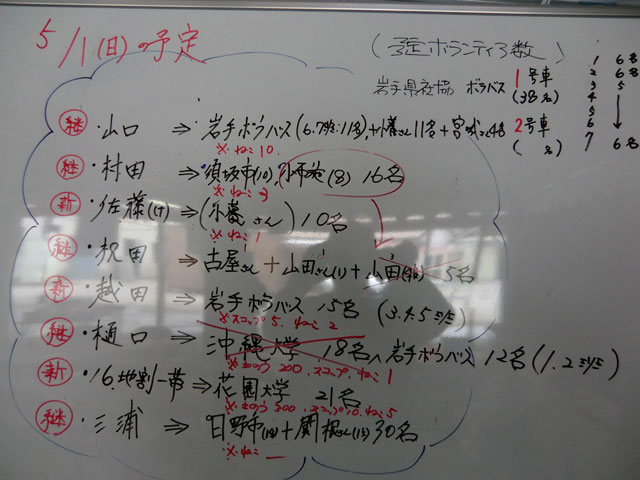 5/1(日)の予定
(予定ボランティア数)
岩手県社協 ボラバス 1号車 (38名)
2号車 ( 名)
1 6名
2 6名
3 5
4
5
6
7 6名
継 ・山口 ⇒ 岩手ボラバス 11名
※ねこ10.
継 ・村田 ⇒ 須坂市(10), (8) 16名
※ねこ3
新 ・佐藤 ⇒ (小養さん) 10名
※ねこ1
継 田 ⇒ 古屋さん+山田さん(1)+小田 5名
新 ・越田 ⇒ 岩手ボラバス 15名 (3.4.5
※スコップ5. ねこ2
継 ・樋口 ⇒ 沖縄大学 18名 岩手ボラバス 12名(1.2
※土のう200.スコップ.ねこ1
新 ・16.地割一帯 ⇒ 花園大学 21名
※土のう300 スコップ10.ねこ5
継 ・三浦 ⇒ 日野市(18)+関根さん(12) 30名
※ねこ